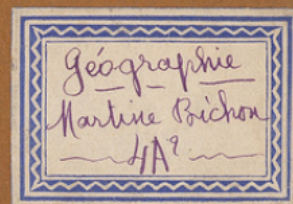 Géographie
Martine Bichon
4A²